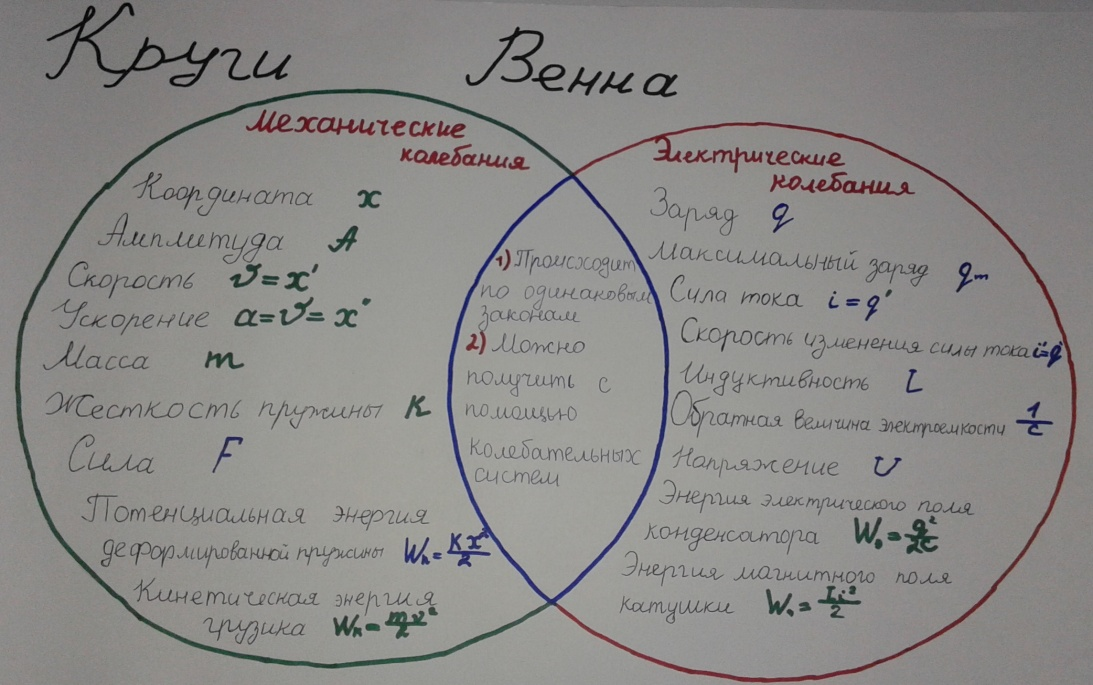 Круги Венна
Механические
колебания
Координата x
Амплитуда A
Скорость v=x'
Ускорение a=v=x"
Масса m
Жесткость пружины K
Сила F
Потенциальная энергия
деформированной пружины Wп=Kx²/2
Кинетическая энергия
грузика Wк=mv²/2
1) Происходит
по одинаковым
законам
2) Можно
получить с
помощью
колебательных
систем
Электрические
колебания
Заряд q
Максимальный заряд qm
Сила тока i=q'
Скорость изменения силы тока
Индуктивность L
Обратная величина электроемкости 1/C
Напряжение U
Энергия электрического поля
конденсатора Wэ=q²/2C
Энергия магнитного поля
катушки =Li²/2